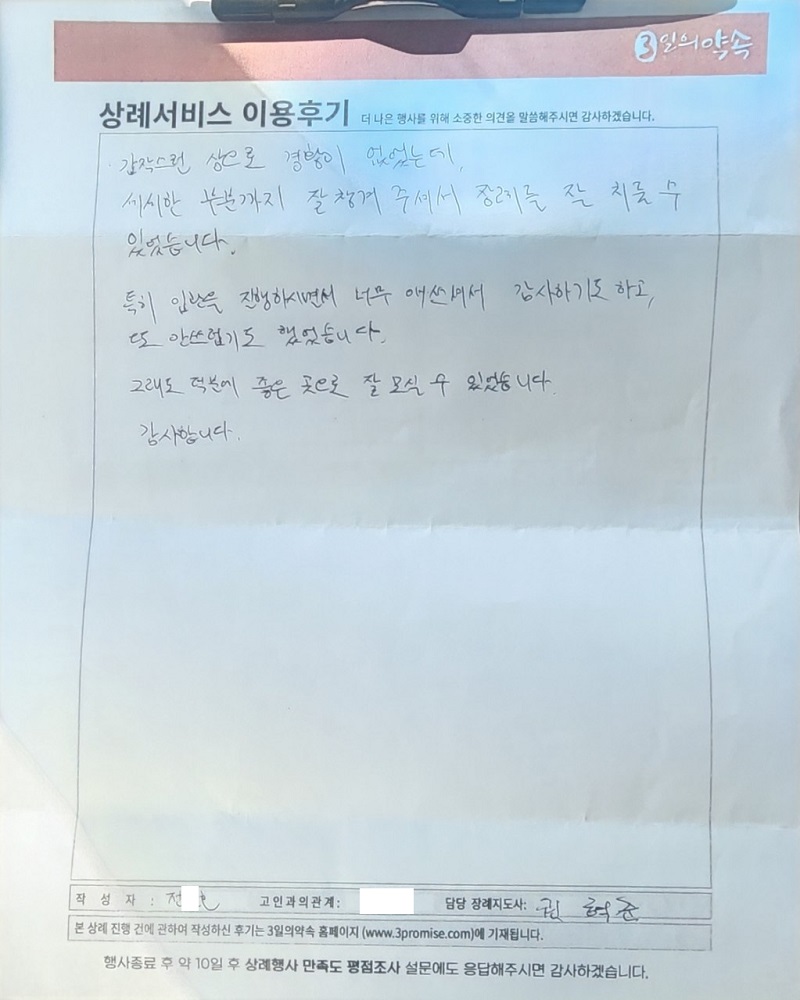 3일의약속
상례서비스 이용후기 더 나은 행사를 위해 소중한 의견을 말씀해주시면 감사하겠습니다.
갑작스런 상으로 경황이 없었는데,
세시한 부분까지 잘 챙겨 주셔서 장례를 잘 치를 수
있었습니다.
특히 입관을 진행하시면서 너무 애쓰셔서 감사하기도 하고,
또 안쓰럽기도 했었습니다.
그래도 덕분에 좋은 곳으로 잘 모실 수 있었습니다.
감사합니다.
작 성 자 : 전 고인과의관계: 담당 장례지도사: 권 혁 준
본 상례 진행 건에 관하여 작성하신 후기는 3일의약속 홈페이지 (www.3promise.com)에 기재됩니다.
행사종료 후 약 10일 후 상례행사 만족도 평점조사 설문에도 응답해주시면 감사하겠습니다.